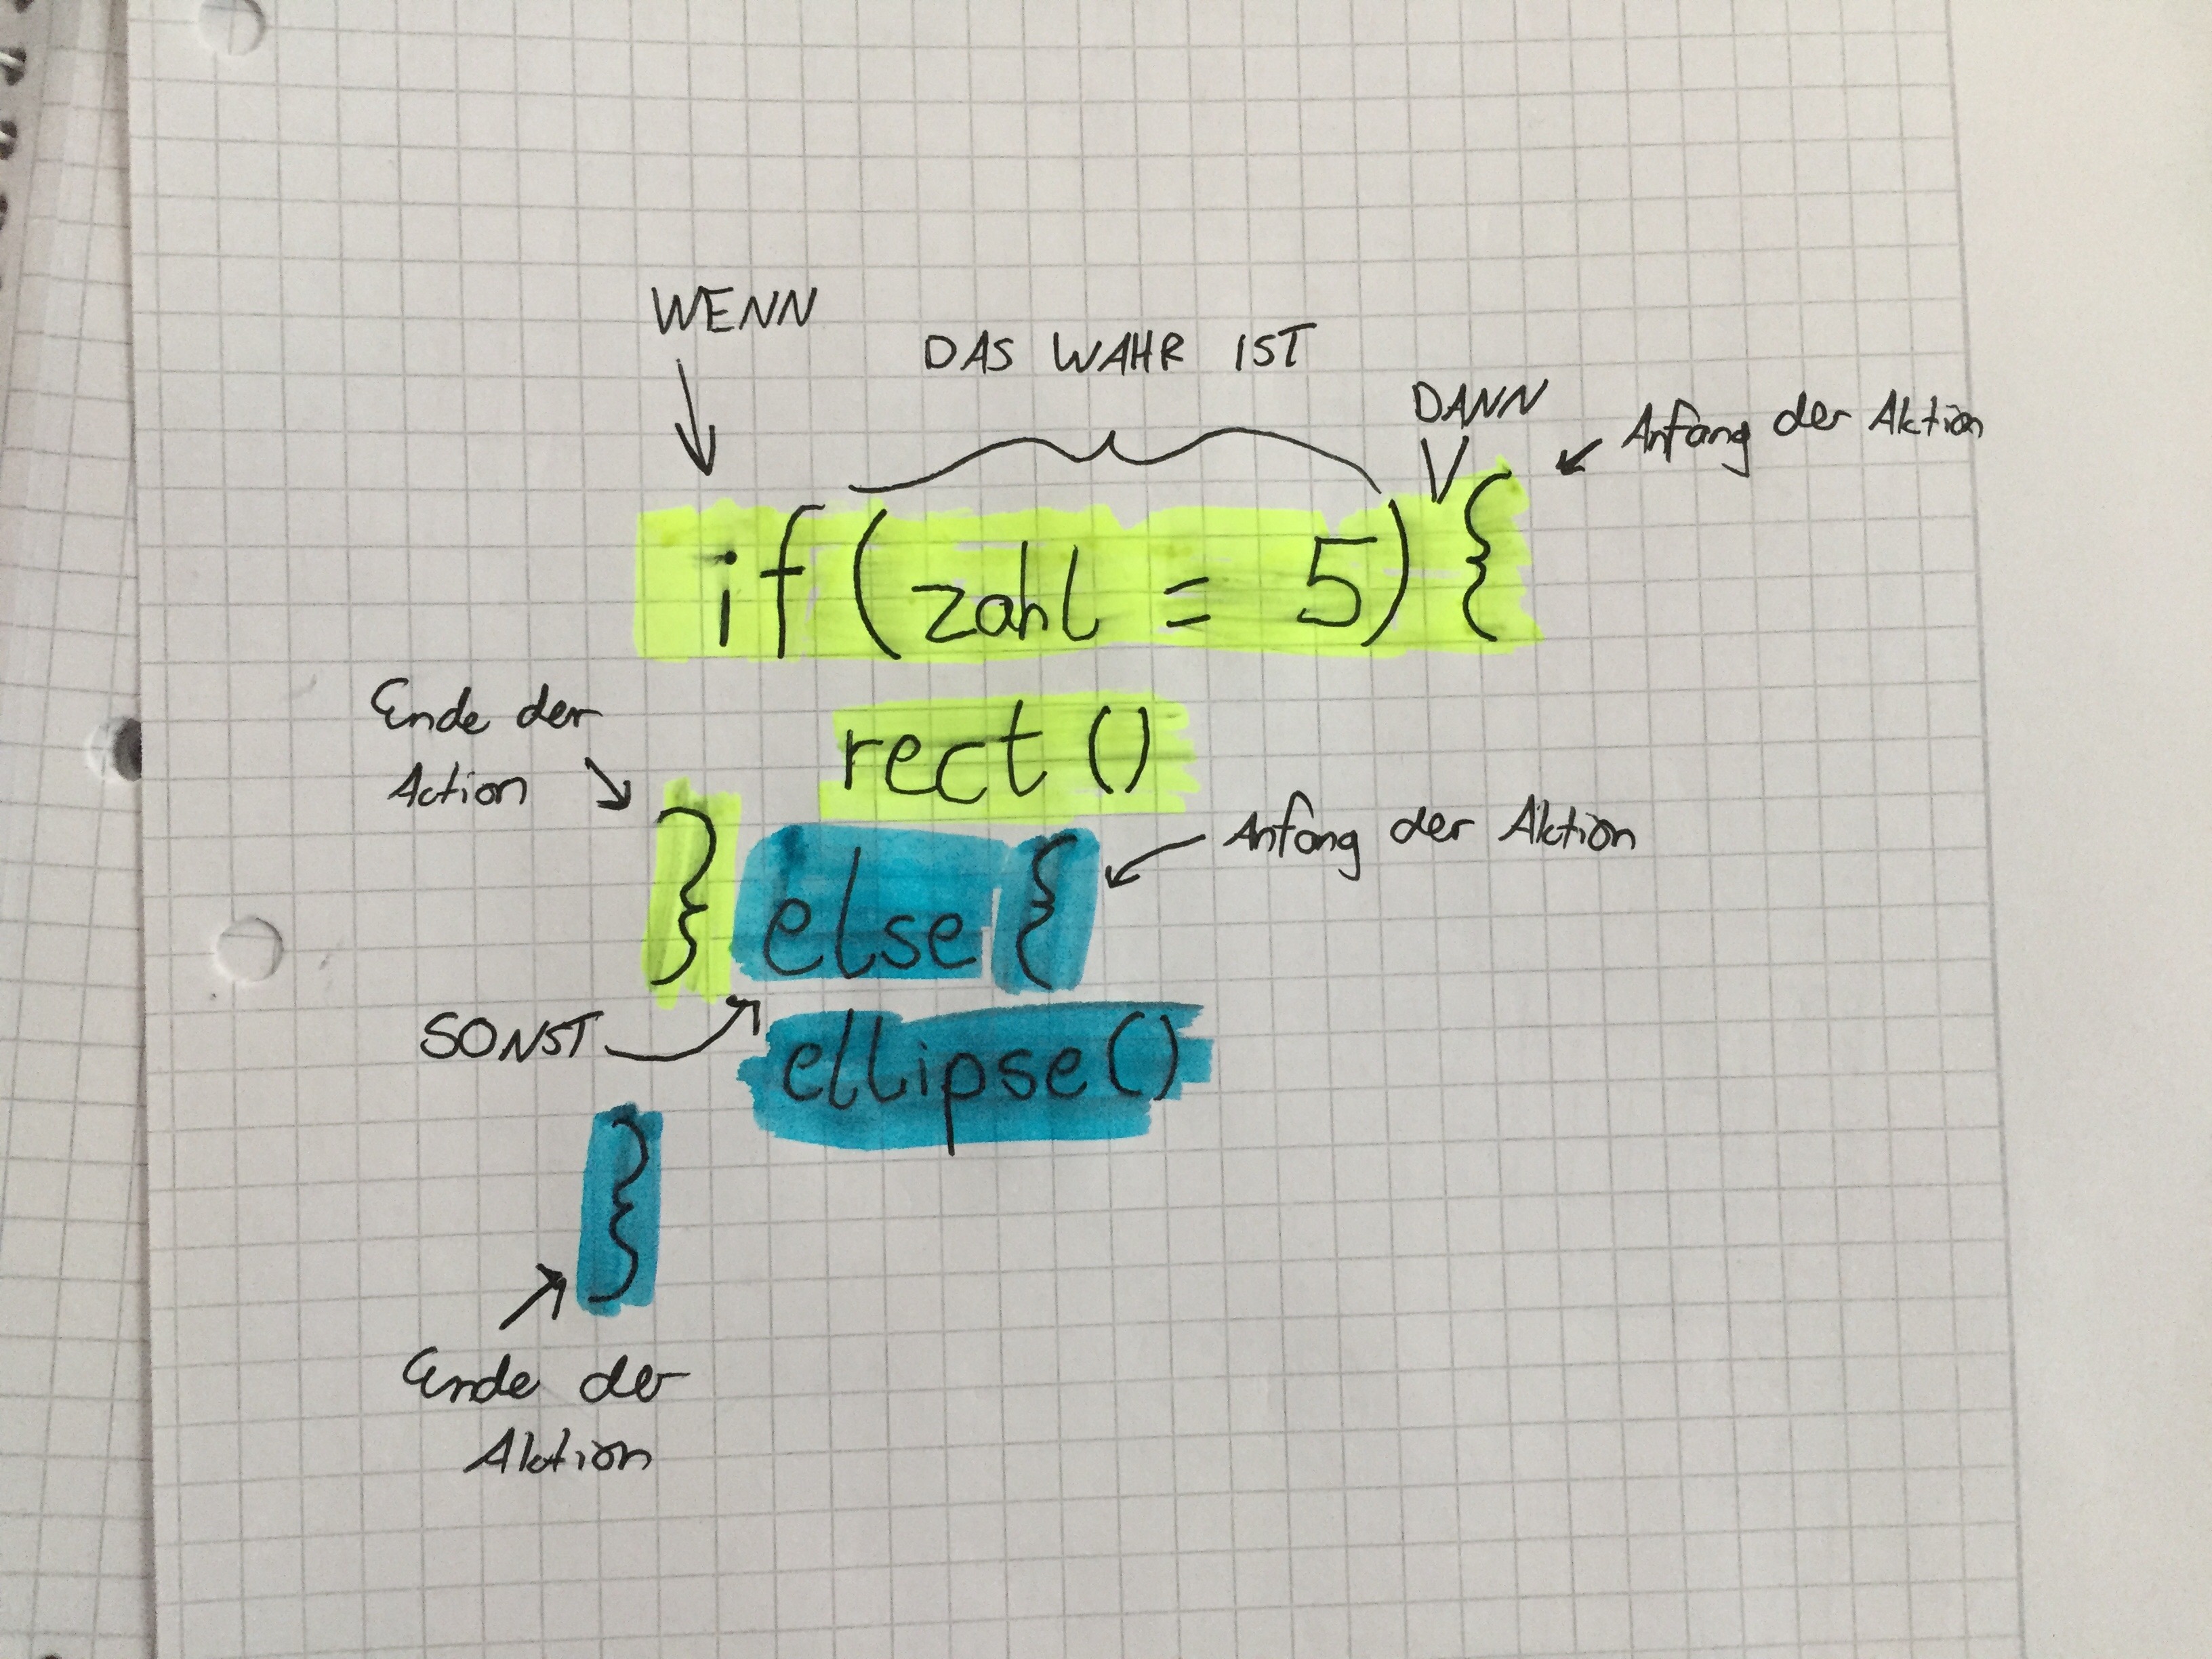 WENN
DAS WAHR IST
DANN
Anfang der Aktion
if (zahl = 5) {
Ende der
Action
rect ()
} else {
Anfang der Aktion
SONST
ellipse ()
}
Ende der
Aktion